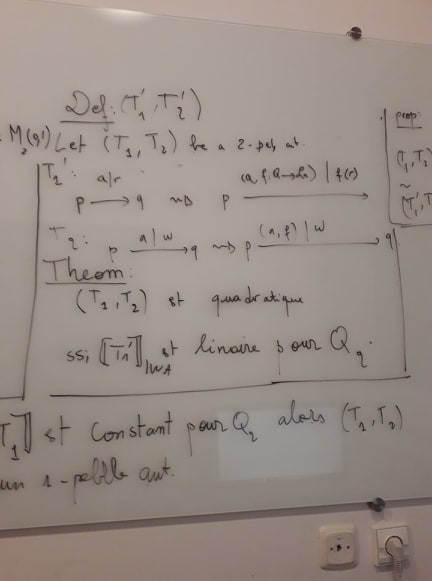 Def: (T₁', T₂')
M₂(q') Let (T₁, T₂) be a 2-peb aut.
T₁': a/r
p → q ⇝ p (a, f: Q→Q₂) | f(r) →
T₂: p a|w → q ⇝ p (a, f) | w → q
Theom:
(T₁, T₂) est quadratique
ssi ⟦T₁'⟧|WA est linaire pour Q_q.
T₁⟧ est constant pour Q₂ alors (T₁, T₂)
un 1-pebble aut.
prop
(T₁, T₂)
~
(T₁', T